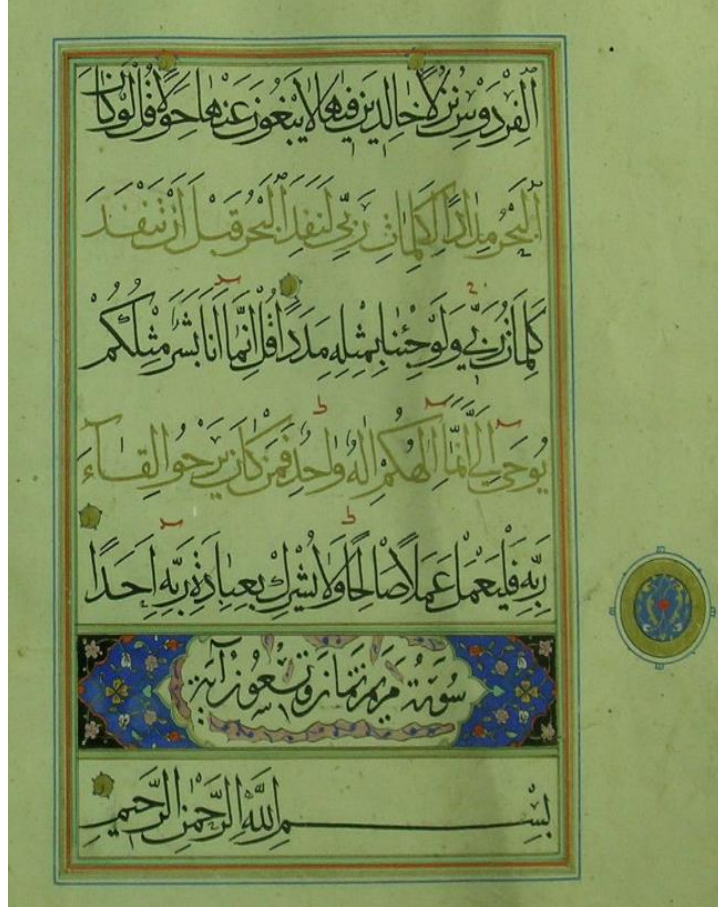 الْفِرْدَوْسِ نُزُلًا خَالِدِينَ فِيهَا لَا يَبْغُونَ عَنْهَا حِوَلًا قُلْ لَوْ كَانَ
الْبَحْرُ مِدَادًا لِكَلِمَاتِ رَبِّي لَنَفِدَ الْبَحْرُ قَبْلَ أَنْ تَنْفَدَ
كَلِمَاتُ رَبِّي وَلَوْ جِئْنَا بِمِثْلِهِ مَدَدًا قُلْ إِنَّمَا أَنَا بَشَرٌ مِثْلُكُمْ
يُوحَى إِلَيَّ أَنَّمَا إِلَهُكُمْ إِلَهٌ وَاحِدٌ فَمَنْ كَانَ يَرْجُوا لِقَاءَ
رَبِّهِ فَلْيَعْمَلْ عَمَلًا صَالِحًا وَلَا يُشْرِكْ بِعِبَادَةِ رَبِّهِ أَحَدًا
سورة مريم ثمان وتسعون آية
بِسْمِ اللَّهِ الرَّحْمَنِ الرَّحِيمِ